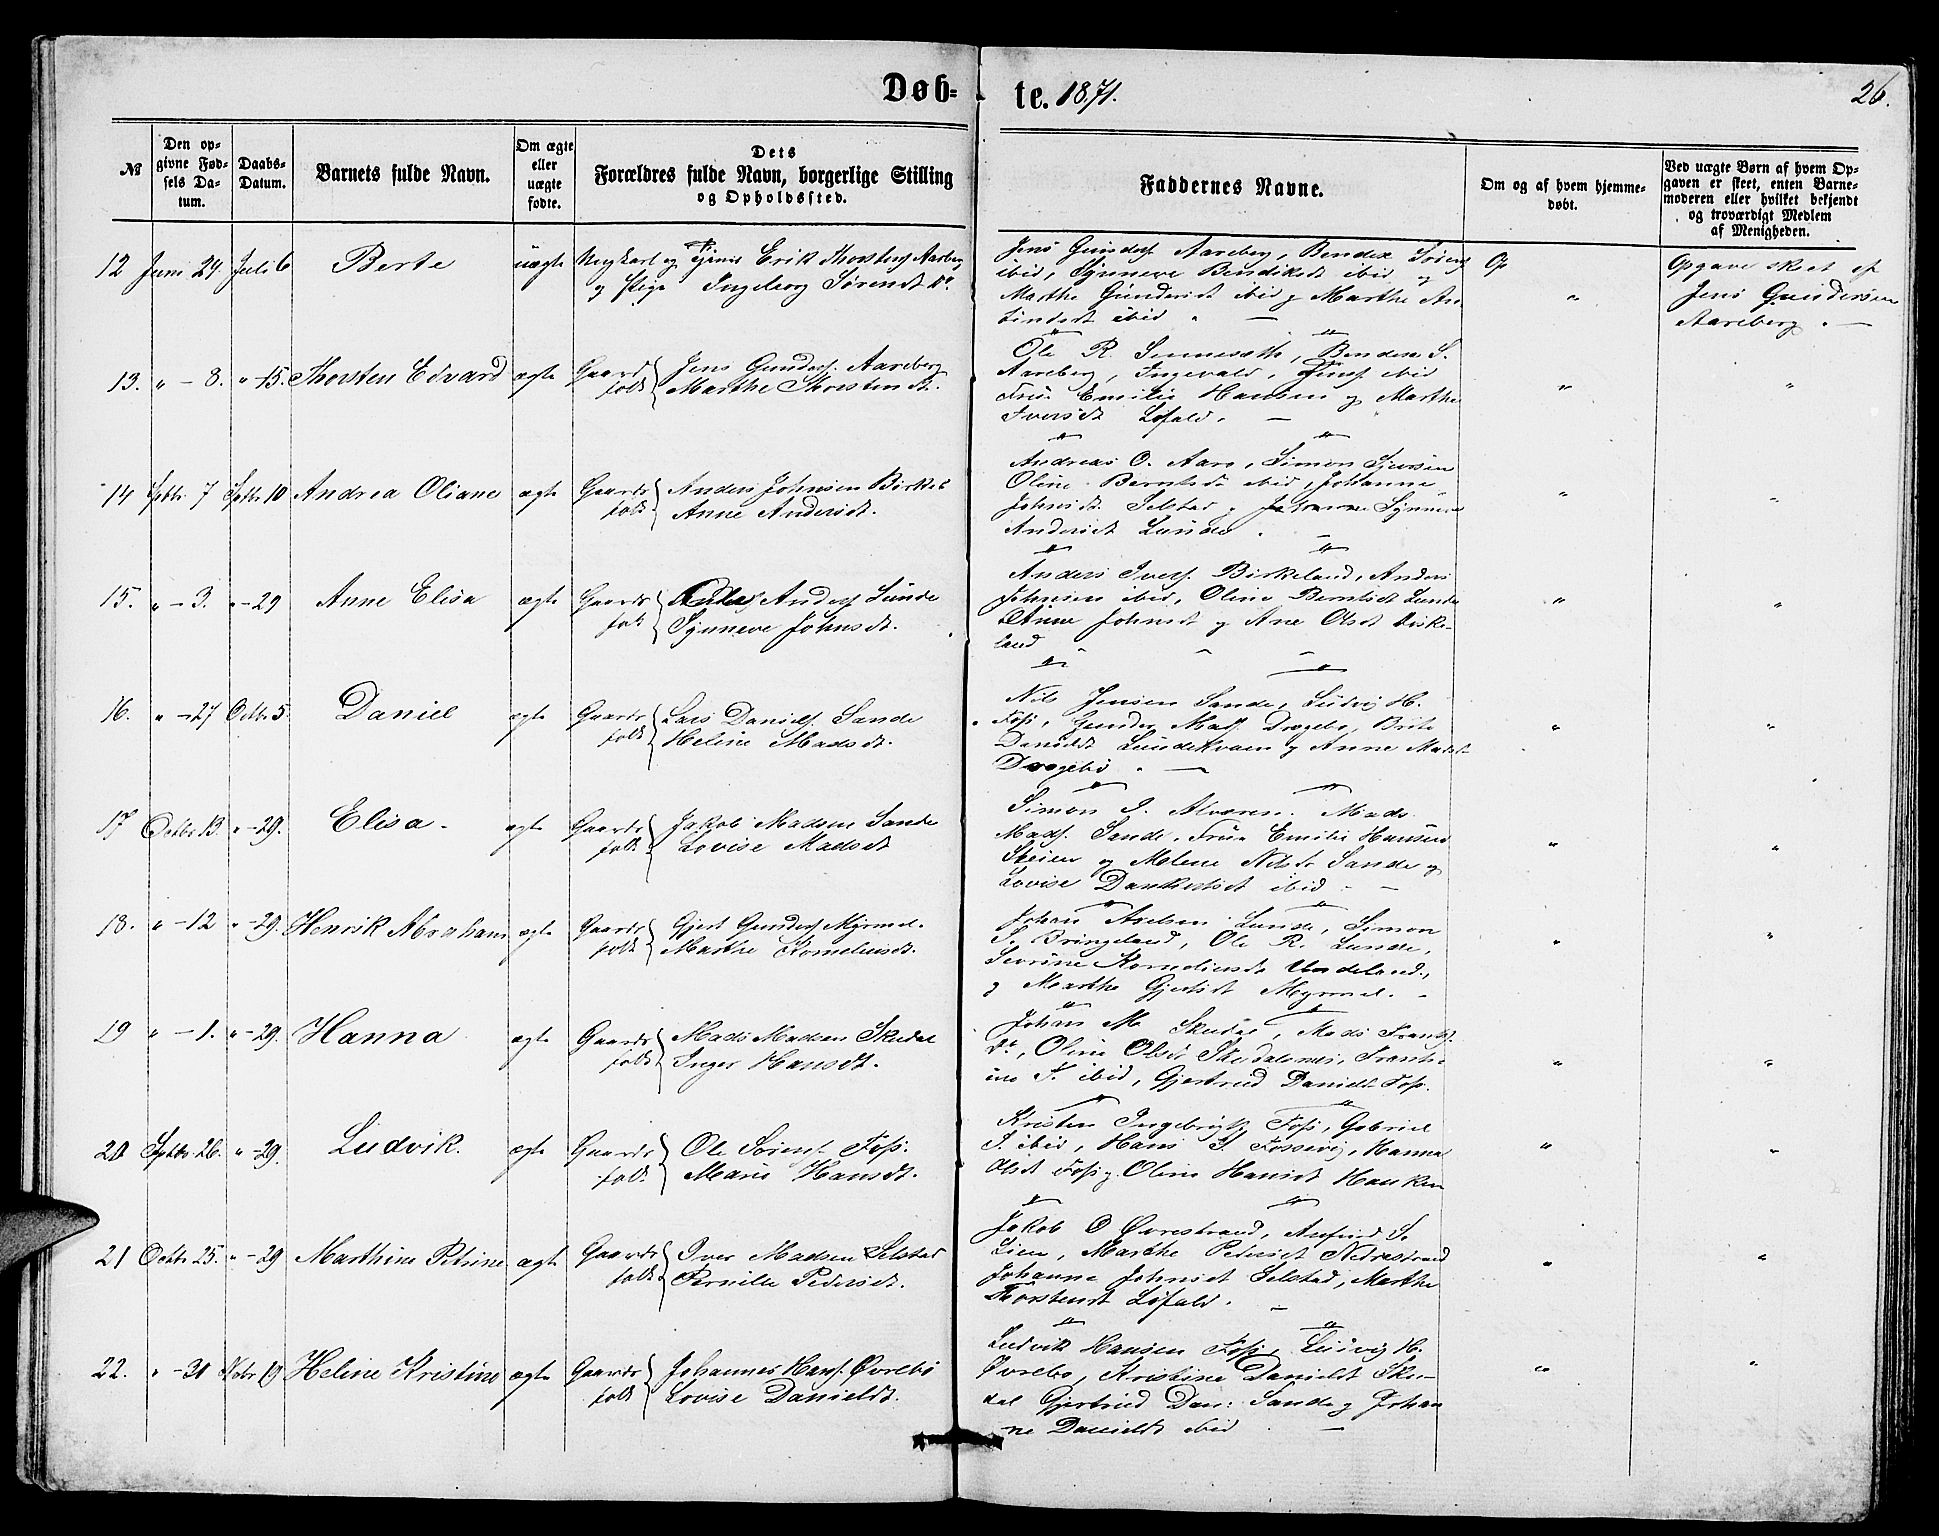 Døb-te. 1871.
26.
№
Den op-
givne Fød-
sels Da-
tum.
Daabs-
Datum.
Barnets fulde Navn.
Om ægte
eller
uægte
fødte.
Dets
Forældres fulde Navn, borgerlige Stilling
og Opholdssted.
Faddernes Navne.
Om og af hvem hjemme-
døbt.
Ved uægte Børn af hvem Op-
gaven er skeet, enten Barne-
moderen eller hvilket bekjendt
og troværdigt Medlem
af Menigheden.
12 Juni 24. Juli 6 Berte uægte Ungkarl og Erik Thorstens Aareberg
og Pige Ingeborg Sørensdt. do.
Jens Gunders. Aareberg, Bendix Sørens
ibid, Synneve Bendiksdt ibid og
Marthe Gundersdt ibid og Marthe An
ibid
Opgave skeet af
Jens Gundersen
Aareberg.
13. " - 8. " - 15. Thorsten Edvard ægte Gaard folk Jens Gunders. Aareberg
Marthe Thorstensdt.
Ole R. Bendix S.
Aareberg, Ingevald, Jens. ibid
Fru Emilie Hansen og Marthe
Iversdt Løfald.
14 Septbr 7 Septbr 10 Andrea Oliane ægte Gaard folk Anders Johnsen Birkel
Anne Andersdt.
Andreas O. Aarø, Simon Sjursen
Oline Berntsdt ibid, Johanne
Johnsdt. Selstad og Synneve
Andersdt Lunde
15. " - 3. " - 29 Anne Elisa ægte Gaard folk Anders. Sunde
Synneve Johnsdt.
Anders Ivers. Birkeland, Anders
Johnsen ibid, Oline Berntsdt Lunde
Anne Johnsdt og Ane Olsdt Birke-
land
16. " - 27 Octbr 5. Daniel ægte Gaard folk Lars Daniels. Sande
Helene Madsdt.
Nils Jensen Sande, Ludvig H.
Foss, Gunder Mads. Drægebø, Brite
Danieldt og Anne Madsdt
Drægebø
17 Octbr 13. " - 29. Elisa. ægte Gaard folk Jakob Madsen Sande
Lovise Madsdt
Simon J. Alværen. Mads
Mads. Sande, Frue Emilie Hansen
Steien og Malene Nilsdt Sande og
Lovise Dankertsdt ibid
18. " - 12 " - 29. Henrik Abraham ægte Gaard folk Gjert Gunders. Myrmel.
Marthe Korneliusdt.
Johan Axelsen Lunde, Simon
S. Bringeland, Ole R. Lunde,
Sevrine Korneliusdt
og Marthe Gjertsdt Myrmel.
19 " - 1. " - 29. Hanna ægte Gaard folk Mads Madsen Skudal
Inger Hansdt.
Johan M Skudal, Mads Frants.
do., Oline Olsdt Skudalsnes, Frants
ibid, Gjertrud Danieldt Foss.
20 Septbr. 26. " - 29. Ludvik. ægte Gaard folk Ole Sørens. Foss.
Marie Hansdt.
Kristen Ingebrigts. Foss, Gabriel
S. ibid, Hans S. Fossevig, Hanna
Olsdt Foss og Oline Hansdt
21 Octbr 25. " - 29 Marthine Petrine ægte Gaard folk Iver Madsen Selstad
Pernille Pedersdt.
Jakob O Øvrestrand, Anfind S.
Lien, Marthe Pedersdt Nedrestrand
Johanne Johnsdt Selstad, Marthe
Thorstensdt Løfald.
22. " - 31 Novbr 19 Heline Kristine ægte Gaard folk Johannes Hans. Øvrebø
Lovise Danieldt.
Ludvik Hansen Foss, Ludvig H.
Øvrebø, Kristine Danieldt Sku-
dal Gjertrud Dan: Sande og Johan
ne Danieldt ibid